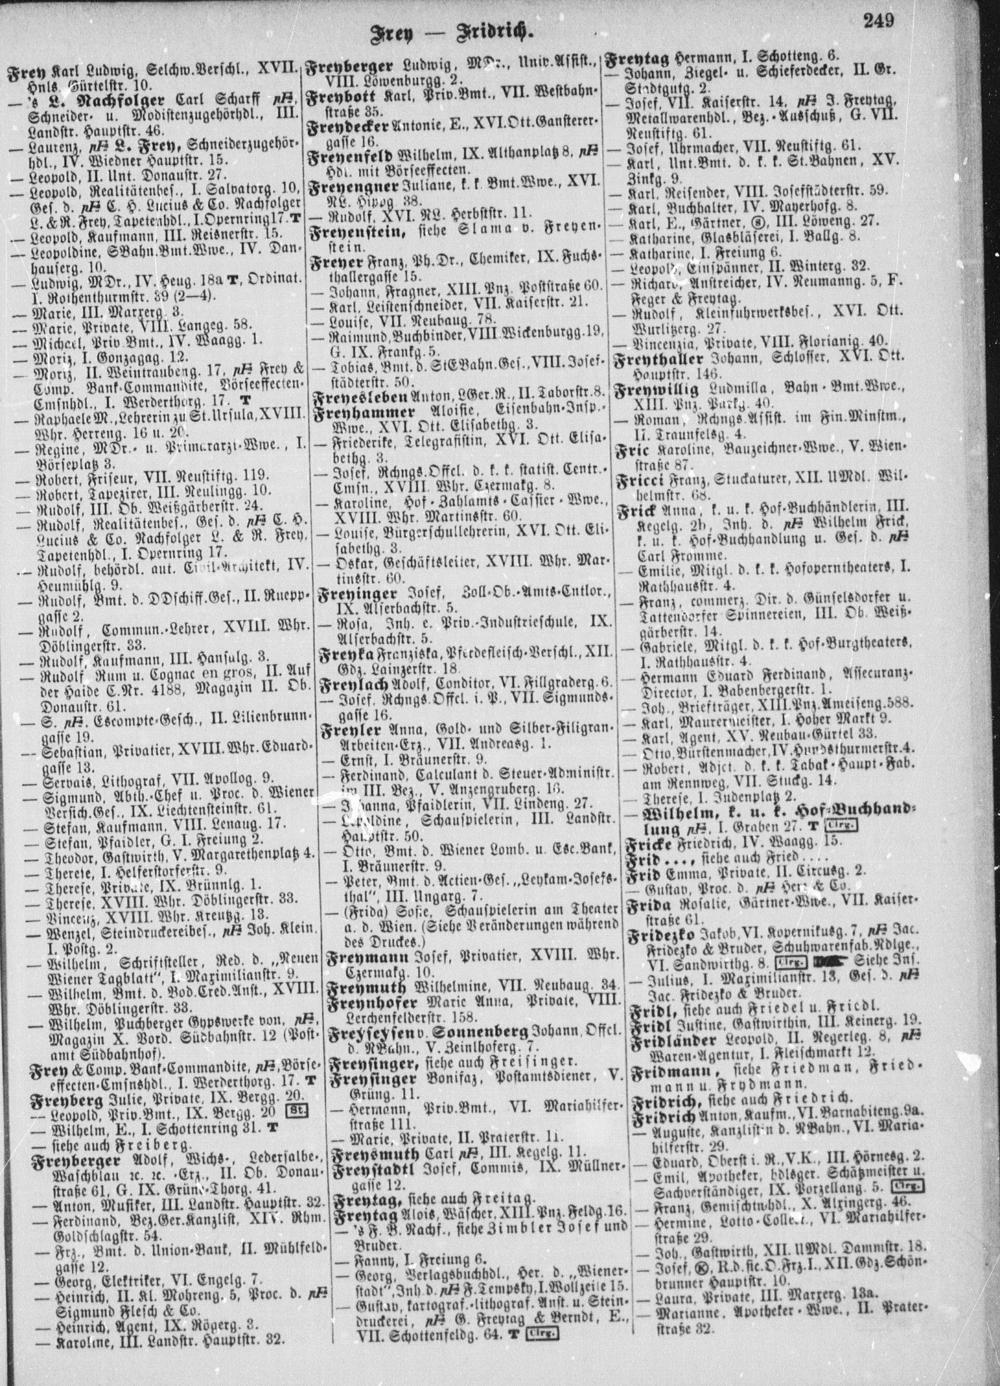 Frey — Fridrich.
249
Frey Karl Ludwig, Selchw.Verschl., XVII.
Hnls. Gürtelstr. 10.
— 's L. Nachfolger Carl Scharff
Schneider- u. Modistenzugehörhdl., III.
Landstr. Hauptstr. 46.
— Laurenz, L. Frey, Schneiderzugehör-
hdl., IV. Wiedner Hauptstr. 15.
— Leopold, II. Unt. Donaustr. 27.
— Leopold, Realitätenbes., I. Salvatorg. 10,
Ges. d. C. H. Lucius & Co. Nachfolger
L. & R. Frey, Tapetenhdl., I. Opernring 17. T
— Leopold, Kaufmann, III. Reisnerstr. 15.
— Leopoldine, SBahn.Bmt.Wwe., IV. Dan-
hauserg. 10.
— Ludwig, MDr., IV. Heug. 18a T, Ordinat.
I. Rothenthurmstr. 39 (2—4).
— Marie, III. Marxerg. 3.
— Marie, Private, VIII. Langeg. 58.
— Michael, Priv.Bmt., IV. Waagg. 1.
— Moriz, I. Gonzagag. 12.
— Moriz, II. Weintraubeng. 17, Frey &
Comp. Bank-Commandite, Börseeffecten-
Cmsnhdl., I. Werderthorg. 17. T
— Raphaele M., Lehrerin zu St. Ursula, XVIII.
Whr. Herreng. 16 u. 20.
— Regine, MDr.- u. Primararzt-Wwe., I.
Börseplatz 3.
— Robert, Friseur, VII. Neustiftg. 119.
— Robert, Tapezirer, III. Neulingg. 10.
— Rudolf, III. Ob. Weißgärberstr. 24.
— Rudolf, Realitätenbes., Ges. d. C. H.
Lucius & Co. Nachfolger L. & R. Frey,
Tapetenhdl., I. Opernring 17.
— Rudolf, behördl. aut. Civil-Architekt, IV.
Heumühlg. 9.
— Rudolf, Bmt. d. DDschiff.Ges., II. Ruepp-
gasse 2.
— Rudolf, Commun.-Lehrer, XVIII. Whr.
Döblingerstr. 33.
— Rudolf, Kaufmann, III. Hansalg. 3.
— Rudolf, Rum u. Cognac en gros, II. Auf
der Haide C.Nr. 4188, Magazin II. Ob.
Donaustr. 61.
— S. Escompte-Gesch., II. Lilienbrunn-
gasse 19.
— Sebastian, Privatier, XVIII. Whr. Eduard-
gasse 13.
— Servais, Lithograf, VII. Apollog. 9.
— Sigmund, Abth.-Chef u. Proc. d. Wiener
Versich.Ges., IX. Liechtensteinstr. 61.
— Stefan, Kaufmann, VIII. Lenaug. 17.
— Stefan, Pfaidler, G. I. Freiung 2.
— Theodor, Gastwirth, V. Margarethenplatz 4.
— Therese, I. Helferstorferstr. 9.
— Therese, Private, IX. Brünnlg. 1.
— Therese, XVIII. Whr. Döblingerstr. 33.
— Vincenz, XVIII. Whr. Kreuzg. 13.
— Wenzel, Steindruckereibes., Joh. Klein,
I. Postg. 2.
— Wilhelm, Schriftsteller, Red. d. „Neuen
Wiener Tagblatt", I. Maximilianstr. 9.
— Wilhelm, Bmt. d. Bod.Cred.Anst., XVIII.
Whr. Döblingerstr. 33.
— Wilhelm, Puchberger Gypswerke von,
Magazin X. Vord. Südbahnstr. 12 (Post-
amt Südbahnhof).
Frey & Comp. Bank-Commandite, Börse-
effecten-Cmsnshdl., I. Werderthorg. 17. T
Freyberg Julie, Private, IX. Bergg. 20.
— Leopold, Priv.Bmt., IX. Bergg. 20 St.
— Wilhelm, E., I. Schottenring 31. T
— siehe auch Freiberg.
Freyberger Adolf, Wichs-, Lederfalbe-,
Waschblau rc. rc. -Erz., II. Ob. Donau-
straße 61, G. IX. Grüne-Thorg. 41.
— Anton, Musiker, III. Landstr. Hauptstr. 32.
— Ferdinand, Bez.Ger.Kanzlist, XIV. Rhm.
Goldschlagstr. 54.
— Frz., Bmt. d. Union-Bank, II. Mühlfeld-
gasse 12.
— Georg, Elektriker, VI. Engelg. 7.
— Heinrich, II. Kl. Mohreng. 5, Proc. d.
Sigmund Flesch & Co.
— Heinrich, Agent, IX. Rögerg. 3.
— Karoline, III. Landstr. Hauptstr. 32.
Freyberger Ludwig, MDr., Univ.Assist.,
VIII. Löwenburgg. 2.
Freybott Karl, Priv.Bmt., VII. Westbahn-
straße 35.
Freydecker Antonie, E., XVI. Ott. Gansterer-
gasse 16.
Freyenfeld Wilhelm, IX. Althanplatz 8,
Hdl. mit Börseeffecten.
Freyengner Juliane, k. k. Bmt.Wwe., XVI.
NL. Hipog. 38.
— Rudolf, XVI. NL. Herbststr. 11.
Freyenstein, siehe Slama v. Freyen-
stein.
Freyer Franz, Ph.Dr., Chemiker, IX. Fuchs-
thallergasse 15.
— Johann, Fragner, XIII. Pnz. Poststraße 60.
— Karl, Leistenschneider, VII. Kaiserstr. 21.
— Louise, VII. Neubaug. 78.
— Raimund, Buchbinder, VIII. Wickenburgg. 19,
G. IX. Frankg. 5.
— Tobias, Bmt. d. StEBahn.Ges., VIII. Josef-
städterstr. 50.
Freyesleben Anton, LGer.R., II. Taborstr. 8.
Freyhammer Aloisie, Eisenbahn-Insp.-
Wwe., XVI. Ott. Elisabethg. 3.
— Friederike, Telegrafistin, XVI. Ott. Elisa-
bethg. 3.
— Josef, Rchngs.Offcl. d. k. k. statist. Centr.-
Cmsn., XVIII. Whr. Czermakg. 8.
— Karoline, Hof-Zahlamts-Cassier-Wwe.,
XVIII. Whr. Martinsstr. 60.
— Louise, Bürgerschullehrerin, XVI. Ott. Eli-
sabethg. 3.
— Oskar, Geschäftsleiter, XVIII. Whr. Mar-
tinsstr. 60.
Freyinger Josef, Zoll-Ob.-Amts-Cntlor.,
IX. Alserbachstr. 5.
— Rosa, Inh. e. Priv.-Industrieschule, IX.
Alserbachstr. 5.
Freyka Franziska, Pferdefleisch-Verschl., XII.
Gdz. Lainzerstr. 18
Freylach Adolf, Conditor, VI. Fillgraderg. 6.
— Josef, Rchngs.Offcl. i. P., VII. Sigmunds-
gasse 16.
Freyler Anna, Gold- und Silber-Filigran-
Arbeiten-Erz., VII. Andreasg. 1.
— Ernst, I. Bräunerstr. 9.
— Ferdinand, Calculant d. Steuer-Administr.
im III. Bez., V. Anzengruberg. 16.
— Johanna, Pfaidlerin, VII. Lindeng. 27.
— Leopoldine, Schauspielerin, III. Landstr.
Hauptstr. 50.
— Otto, Bmt. d. Wiener Lomb. u. Esc.Bank,
I. Bräunerstr. 9.
— Peter, Bmt. d. Actien-Ges. „Leykam-Josefs-
thal", III. Ungarg. 7.
— (Frida) Sofie, Schauspielerin am Theater
a. d. Wien. (Siehe Veränderungen während
des Druckes.)
Freymann Josef, Privatier, XVIII. Whr.
Czermakg. 10.
Freymuth Wilhelmine, VII. Neubaug. 34.
Freynhofer Marie Anna, Private, VIII.
Lerchenfelderstr. 158.
Freyseysen v. Sonnenberg Johann, Offcl.
d. NBahn., V. Zeinlhoferg. 7.
Freysinger, siehe auch Freisinger.
Freysinger Bonifaz, Postamtsdiener, V.
Grüng. 11.
— Hermann, Priv.Bmt., VI. Mariahilfer-
straße 111.
— Marie, Private, II. Praterstr. 11.
Freysmuth Carl, III. Kegelg. 11.
Freystadtl Josef, Commis, IX. Müllner-
gasse 12.
Freytag, siehe auch Freitag.
Freytag Alois, Wäscher, XIII. Pnz. Feldg. 16.
— 's F. B. Nachf., siehe Zimbler Josef und
Bruder.
— Fanny, I. Freiung 6.
— Georg, Verlagsbuchhdl., Her. d. „Wiener-
stadt", Inh. d. F. Tempsky, I. Wollzeile 15.
— Gustav, kartograf.-lithograf. Anst. u. Stein-
druckerei, G. Freytag & Berndt, E.,
VII. Schottenfeldg. 64. T Clrg.
Freytag Hermann, I. Schotteng. 6.
— Johann, Ziegel- u. Schieferdecker, II. Gr.
Stadtgutg. 2.
— Josef, VII. Kaiserstr. 14, J. Freytag,
Metallwarenhdl., Bez.-Ausschuß, G. VII.
Neustiftg. 61.
— Josef, Uhrmacher, VII. Neustiftg. 61.
— Karl, Unt.Bmt. d. k. k. St.Bahnen, XV.
Zinkg. 9.
— Karl, Reisender, VIII. Josefstädterstr. 59.
— Karl, Buchhalter, IV. Mayerhofg. 8.
— Karl, E., Gärtner, III. Löweng. 27.
— Katharine, Glasbläserei, I. Ballg. 8.
— Katharine, I. Freiung 6.
— Leopold, Einspänner, II. Winterg. 32.
— Richard, Anstreicher, IV. Neumanng. 5, F.
Feger & Freytag.
— Rudolf, Kleinfuhrwerksbes., XVI. Ott.
Wurlitzerg. 27.
— Vincenzia, Private, VIII. Florianig. 40.
Freythaller Johann, Schlosser, XVI. Ott.
Hauptstr. 146.
Freywillig Ludmilla, Bahn-Bmt.Wwe.,
XIII. Pnz. Parkg. 40.
— Roman, Rchngs.Assist. im Fin.Minstm.,
II. Traunfelsg. 4.
Fric Karoline, Bauzeichner-Wwe., V. Wien-
straße 87.
Fricci Franz, Stuckaturer, XII. UMdl. Wil-
helmstr. 68.
Frick Anna, k. u. k. Hof-Buchhändlerin, III.
Kegelg. 2b, Inh. d. Wilhelm Frick,
k. u. k. Hof-Buchhandlung u. Ges. d.
Carl Fromme.
— Emilie, Mitgl. d. k. k. Hofoperntheaters, I.
Rathhausstr. 4.
— Franz, commerz. Dir. d. Günselsdorfer u.
Tattendorfer Spinnereien, III. Ob. Weiß-
gärberstr. 14.
— Gabriele, Mitgl. d. k. k. Hof-Burgtheaters,
I. Rathhausstr. 4.
— Hermann Eduard Ferdinand, Assecuranz-
Director, I. Babenbergerstr. 1.
— Joh., Briefträger, XIII. Pnz. Ameiseng. 588.
— Karl, Maurermeister, I. Hoher Markt 9.
— Karl, Agent, XV. Neubau-Gürtel 33.
— Otto, Bürstenmacher, IV. Hundsthurmerstr. 4.
— Robert, Adjct. d. k. k. Tabak-Haupt-Fab.
am Rennweg, VII. Stuckg. 14.
— Therese, I. Judenplatz 2.
— Wilhelm, k. u. k. Hof-Buchhand-
lung, I. Graben 27. T Clrg.
Fricke Friedrich, IV. Waagg. 15.
Frid ..., siehe auch Fried ....
Frid Emma, Private, II. Circusg. 2.
— Gustav, Proc. d. Herz & Co.
Frida Rosalie, Gärtner-Wwe., VII. Kaiser-
straße 61.
Fridezko Jakob, VI. Kopernikusg. 7, Jac.
Fridezko & Bruder, Schuhwarenfab.Ndlge.,
VI. Sandwirthg. 8. Clrg. Siehe Ins.
— Julius, I. Maximilianstr. 13, Ges. d.
Jac. Fridezko & Bruder.
Fridl, siehe auch Friedel u. Friedl.
Fridl Justine, Gastwirthin, III. Keinerg. 19.
Fridländer Leopold, II. Negerleg. 8,
Waren-Agentur, I. Fleischmarkt 12.
Fridmann, siehe Friedman, Fried-
mann u. Frydmann.
Fridrich, siehe auch Friedrich.
Fridrich Anton, Kaufm., VI. Barnabiteng. 9a.
— Auguste, Kanzlistin d. NBahn., VI. Maria-
hilferstr. 29.
— Eduard, Oberst i. R., V.K., III. Hörnesg. 2.
— Emil, Apotheker, hdlsger. Schätzmeister u.
Sachverständiger, IX. Porzellang. 5. Clrg.
— Franz, Gemischtwhdl., X. Alxingerg. 46.
— Hermine, Lotto-Collect., VI. Mariahilfer-
straße 29.
— Joh., Gastwirth, XII. UMdl. Dammstr. 18.
— Josef, R.d.fic.O.Frz.I., XII. Gdz. Schön-
brunner Hauptstr. 10.
— Laura, Private, III. Marxerg. 13a.
— Marianne, Apotheker-Wwe., II. Prater-
straße 32.